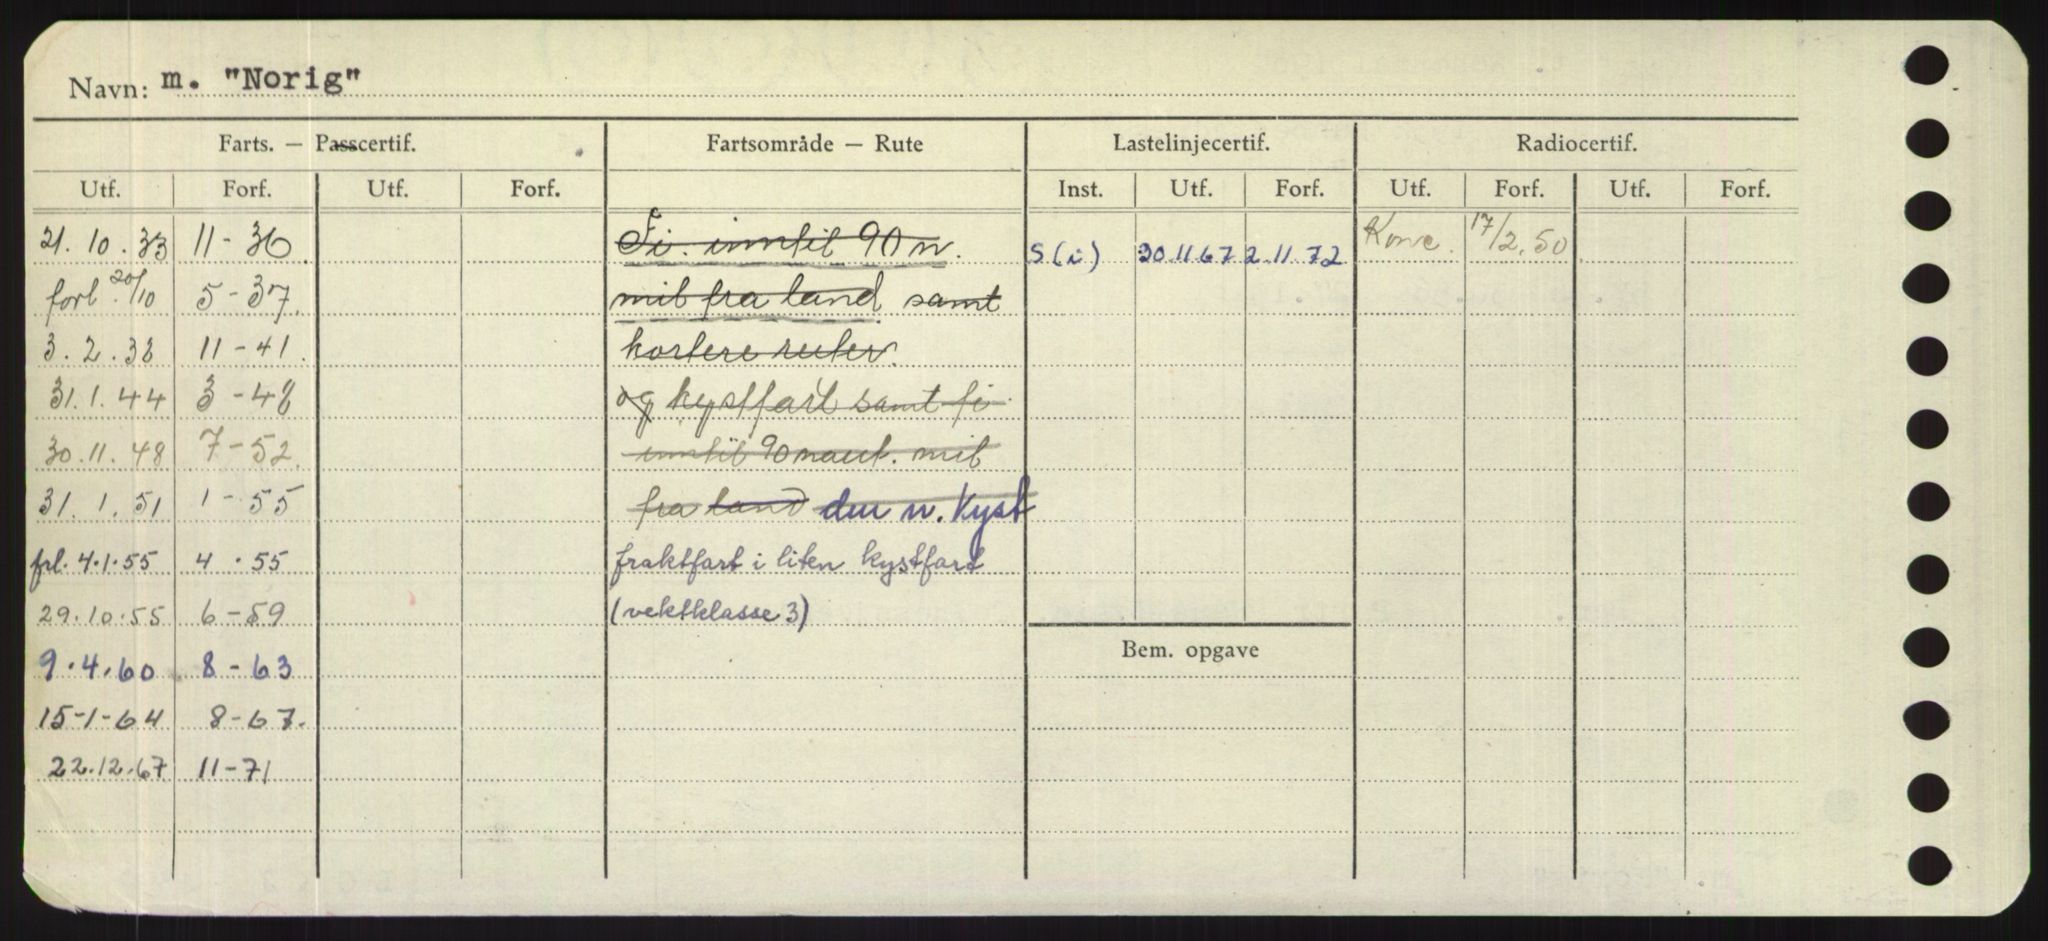 Navn: m. "Norig"
Farts. — Passcertif. Fartsområde — Rute Lastelinjecertif. Radiocertif.
Utf. Forf. Utf. Forf. Inst. Utf. Forf. Utf. Forf. Utf. Forf.
21.10.33 11-36. Fi. inntil 90 n. S(i) 30.11.67 2.11.72 Konv. 17/2.50
forl. 20/10 5-37. mil fra land samt
3.2.38 11-41. kortere ruter.
31.1.44 3-48 og kystfart samt fi
30.11.48 7-52. inntil 90 naut. mil
31.1.51 1-55 fra land den n. Kyst
frl. 4.1.55 4.55 fraktfart i liten kystfart
29.10.55 6-59 (vektklasse 3)
Bem. opgave
9.4.60 8-63
15-1-64 8-67.
22.12.67 11-71